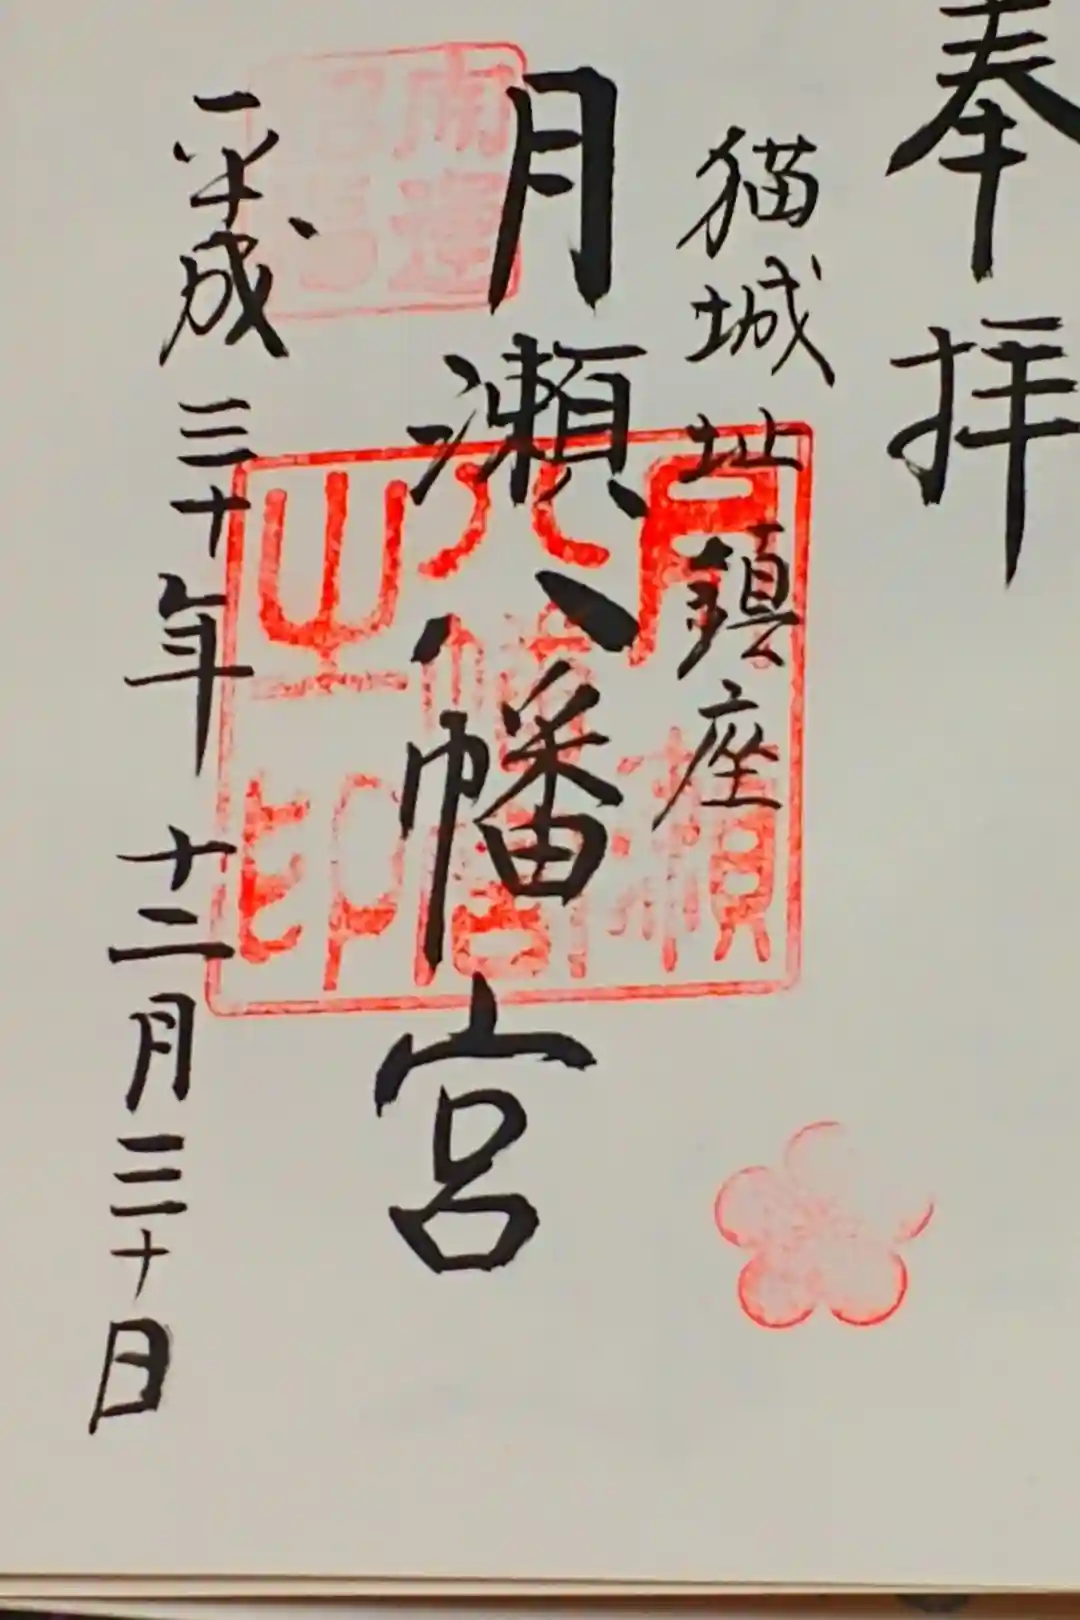 奉拝
猫城址鎮座
月瀬八幡宮
平成三十年 十二月三十日
月瀬
八幡宮
之印